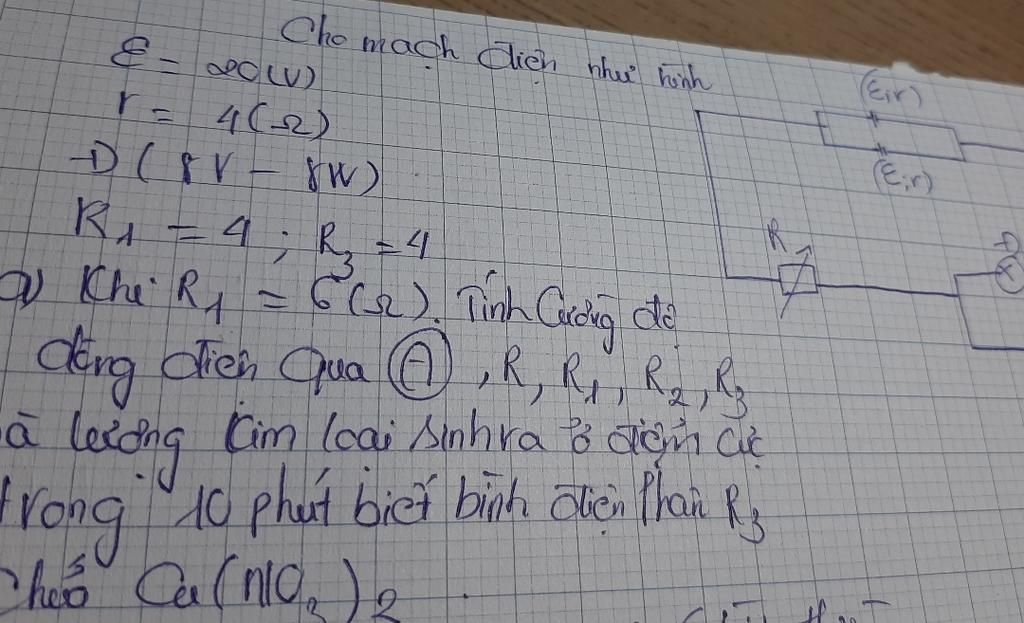 Cho mạch điện như hình
ℰ = 20(V)
r = 4(Ω)
Đ(8V - 8W)
R₁ = 4 ; R₃ = 4
a) Khi R₁ = 6(Ω). Tính Cường độ
dòng điện Qua Ⓐ, R, R₁, R₂, R₃
à lượng kim loại sinh ra ở điện cực
trong 10 phút biết bình điện Phân R₃
Cu(NO₃)₂
(ℰ,r)
(ℰ,r)
R
Đ